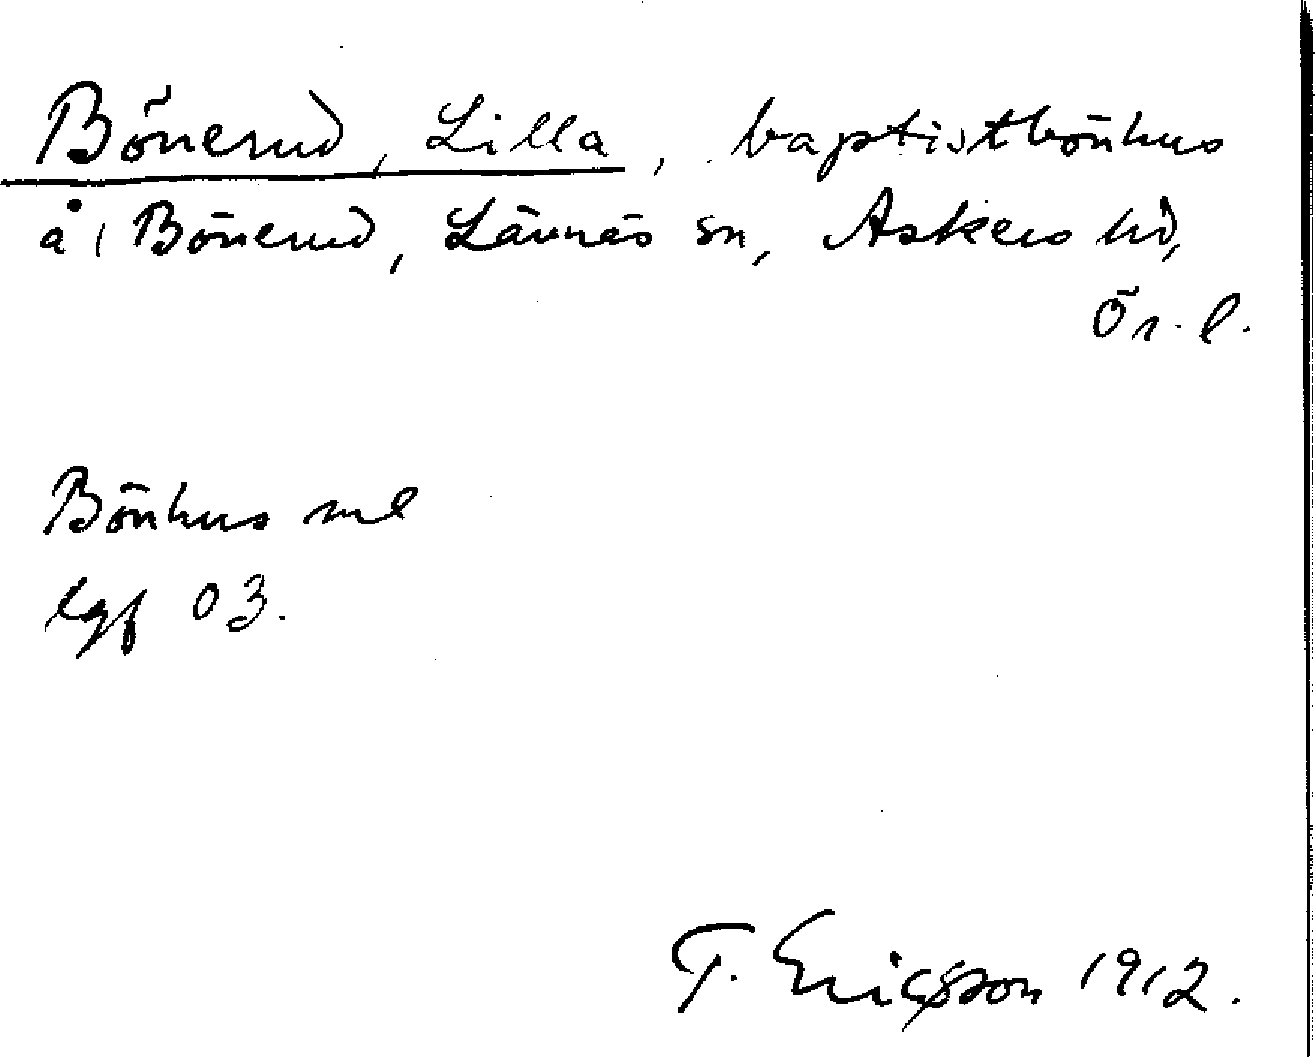 Bönerud, Lilla, baptistbönhus
å 1 Bönerud, Lännäs sn, Askers hd,
Ör. l.
Bönhus sml
lgf 03.
T. Ericsson 1912.